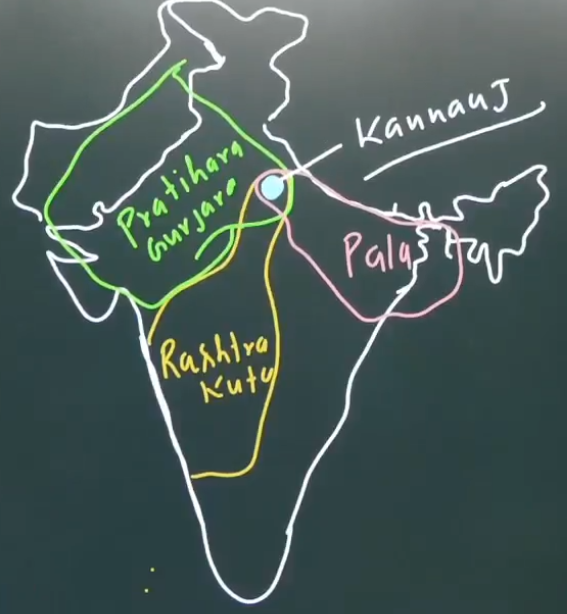 Kannauj
Pratihara
Gurjara
Pala
Rashtra
Kuta